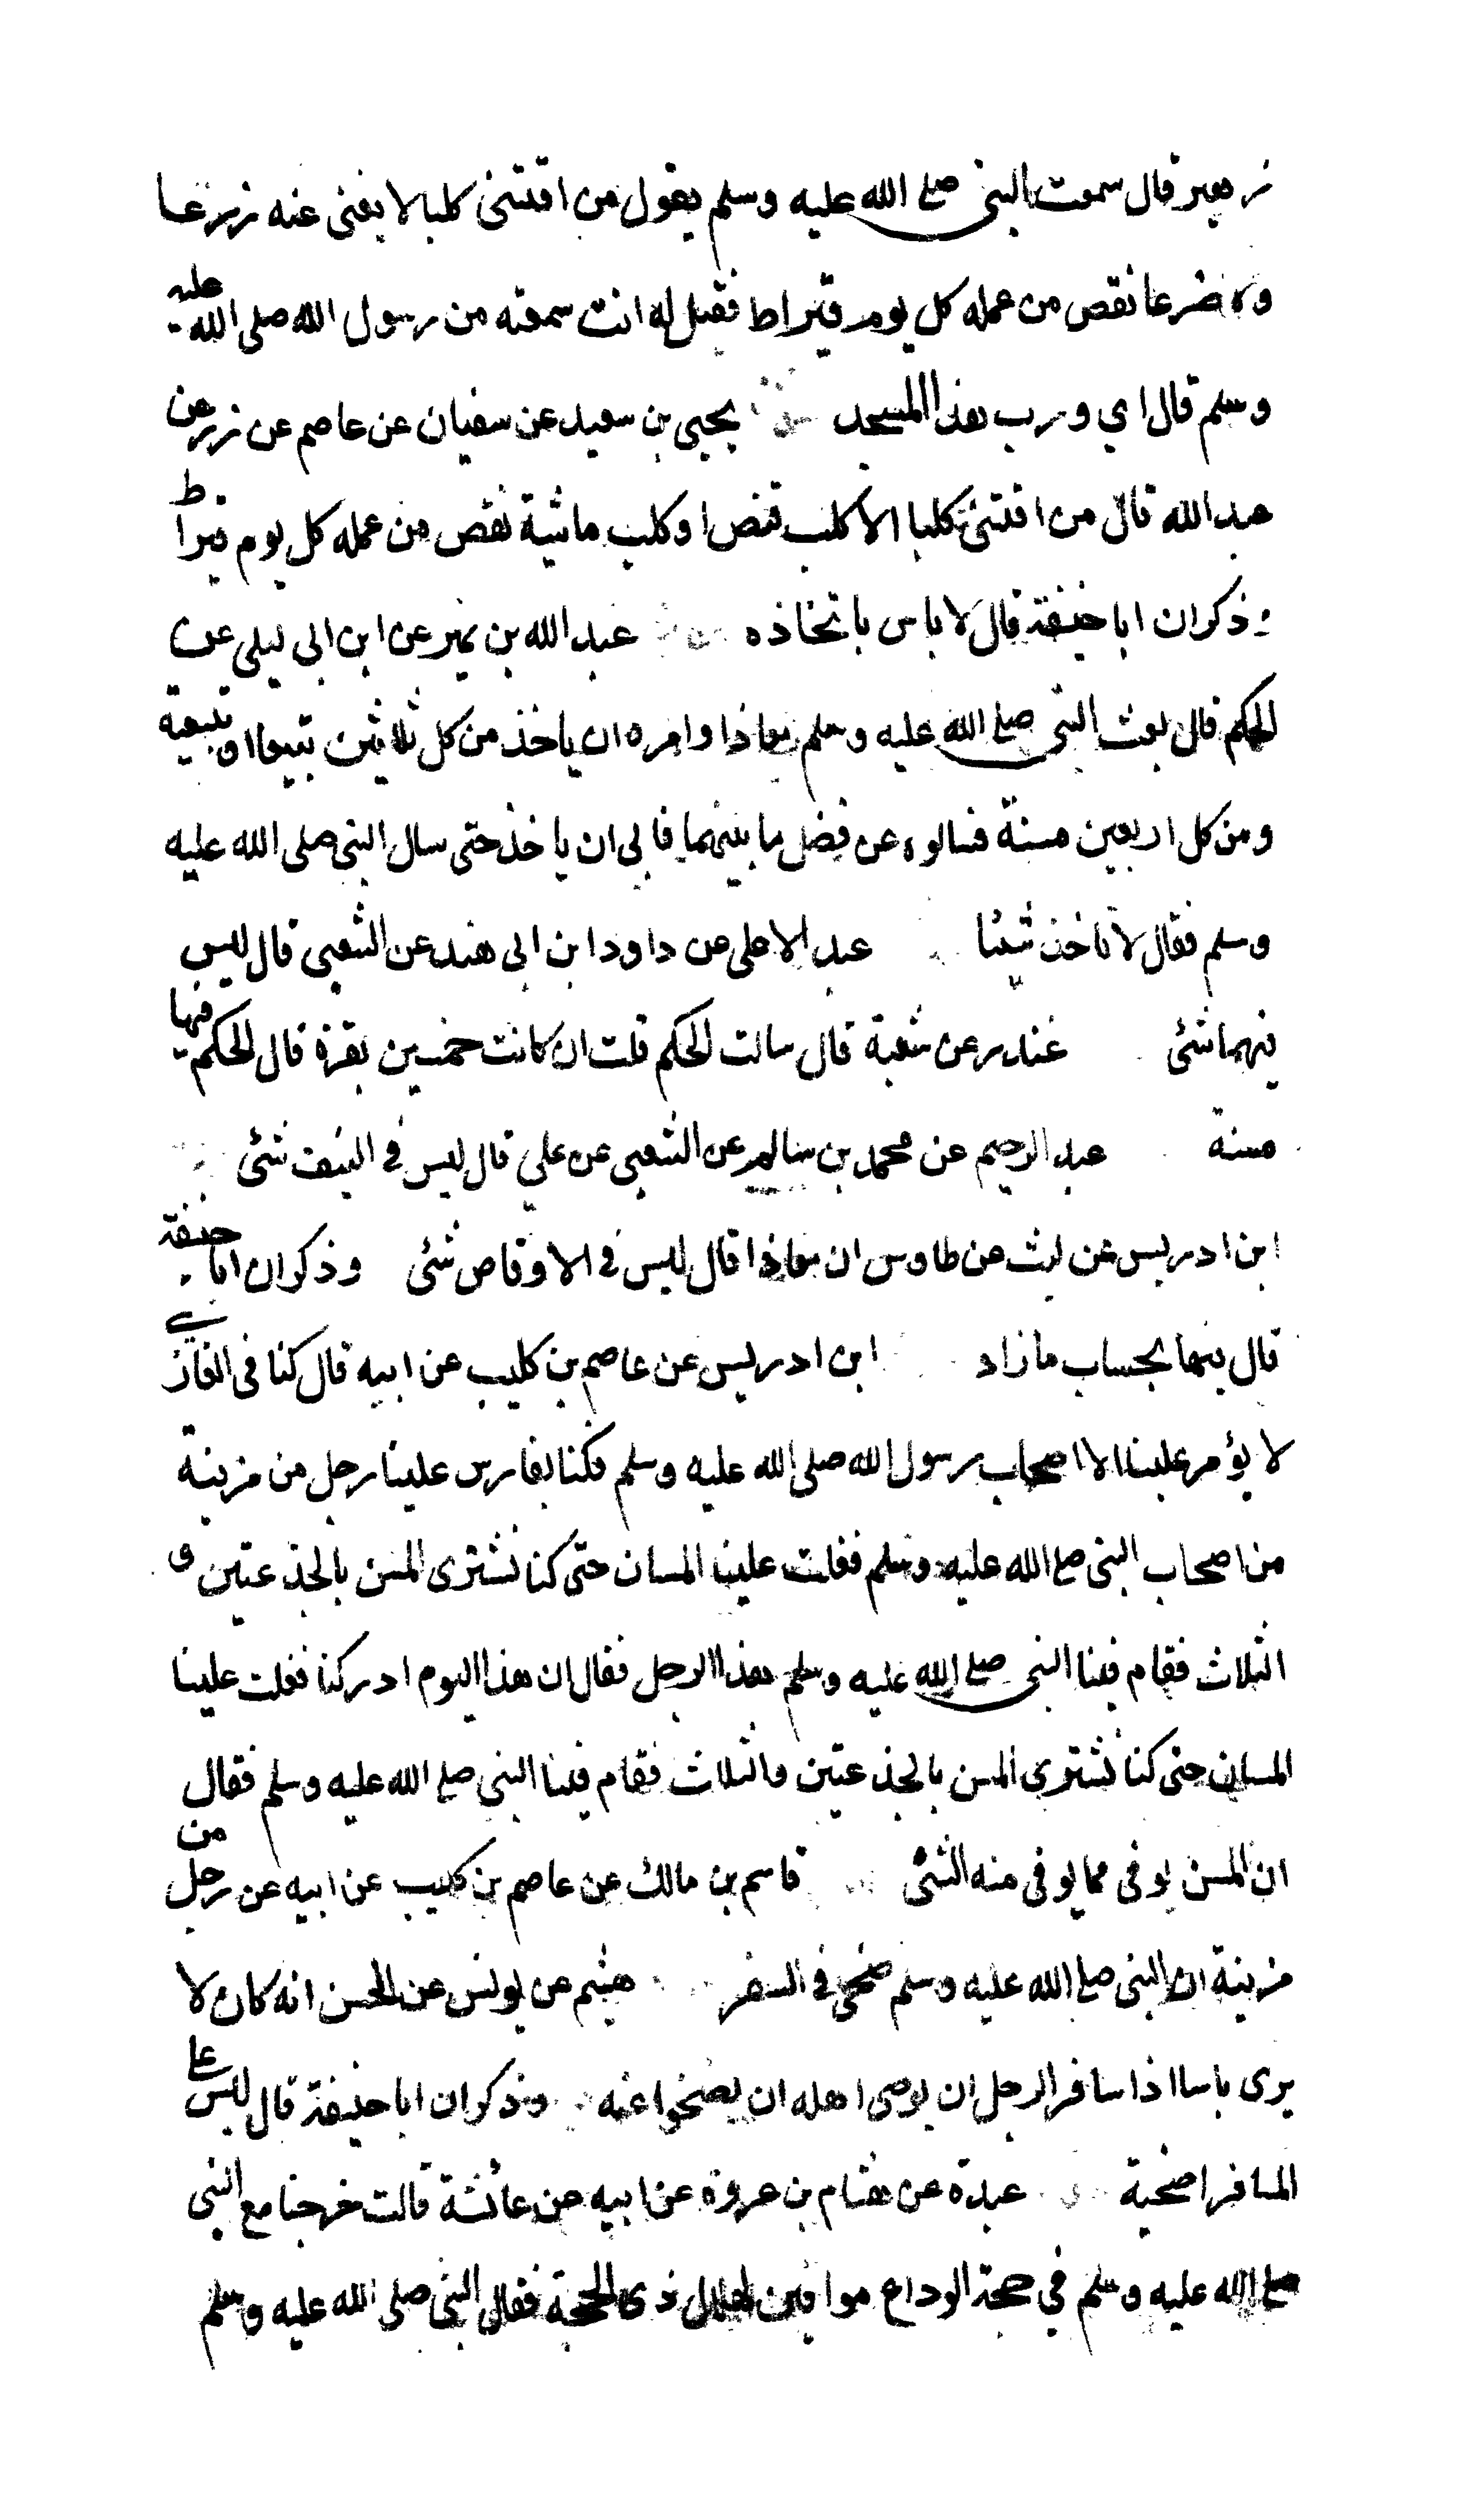 زهير قال سمعت النبي صلى الله عليه وسلم يقول من اقتنى كلبا لا يغنى عنه زرعا
ولا ضرعا نقص من عمله كل يوم قيراط فقيل له انت سمعته من رسول الله صلى الله عليه
وسلم قال اي ورب هذا المسجد يحيى بن سعيد عن سفيان عن عاصم عن زر عن
عبد الله قال من اقتنى كلبا الا كلب قنص او كلب ماشية نقص من عمله كل يوم قيراط
وذكر ان ابا حنيفة قال لا باس باتخاذه عبد الله بن نمير عن ابن ابى ليلى عن
الحكم قال بعث النبي صلى الله عليه وسلم معاذا وامره ان ياخذ من كل ثلاثين تبيعا او تبيعة
ومن كل اربعين مسنة فسالوه عن فضل ما بينهما فابى ان ياخذ حتى سال النبى صلى الله عليه
وسلم فقال لا تاخذ شيئا عبد الاعلى عن داود ابن ابى هند عن الشعبى قال ليس
فيهما شئى غندر عن شعبة قال سالت الحكم قلت ان كانت خمسين بقرة قال الحكم فيها
مسنة عبد الرحيم عن محمد بن سالم عن الشعبى عن علي قال ليس في النيف شئى
ابن ادريس عن ليث عن طاوس ان معاذا قال ليس في الاوقاص شئى وذكر ان ابا حنيفة
قال فيها بحساب ما زاد ابن ادريس عن عاصم بن كليب عن ابيه قال كنا فى المغازي
لا يؤمر علينا الا اصحاب رسول الله صلى الله عليه وسلم فكنا بفارس علينا رجل من مزينة
من اصحاب النبى صلى الله عليه وسلم فغلت علينا المسان حتى كنا نشترى المسن بالجذعتين و
الثلاث فقام فينا النبى صلى الله عليه وسلم هذا الرجل فقال ان هذا اليوم ادركنا فغلت علينا
المسان حتى كنا نشترى المسن بالجذعتين والثلاث فقام فينا النبى صلى الله عليه وسلم فقال
ان المسن يوفى مما يوفى منه الثنى قاسم بن مالك عن عاصم بن كليب عن ابيه عن رجل من
مزينة ان النبى صلى الله عليه وسلم ضحى في السفر هشيم عن يونس عن الحسن انه كان لا
يرى باسا اذا سافر الرجل ان يوصى اهله ان يضحوا عنه وذكر ان ابا حنيفة قال ليس على
المسافر اضحية عبدة عن هشام بن عروة عن ابيه عن عائشة قالت خرجنا مع النبى
صلى الله عليه وسلم في حجة الوداع موافين لهلال ذى الحجة فقال النبى صلى الله عليه وسلم